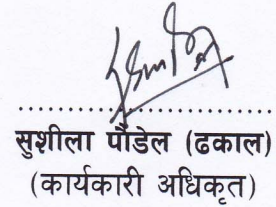 ..............................
सुशीला पौडेल (ढकाल)
(कार्यकारी अधिकृत)